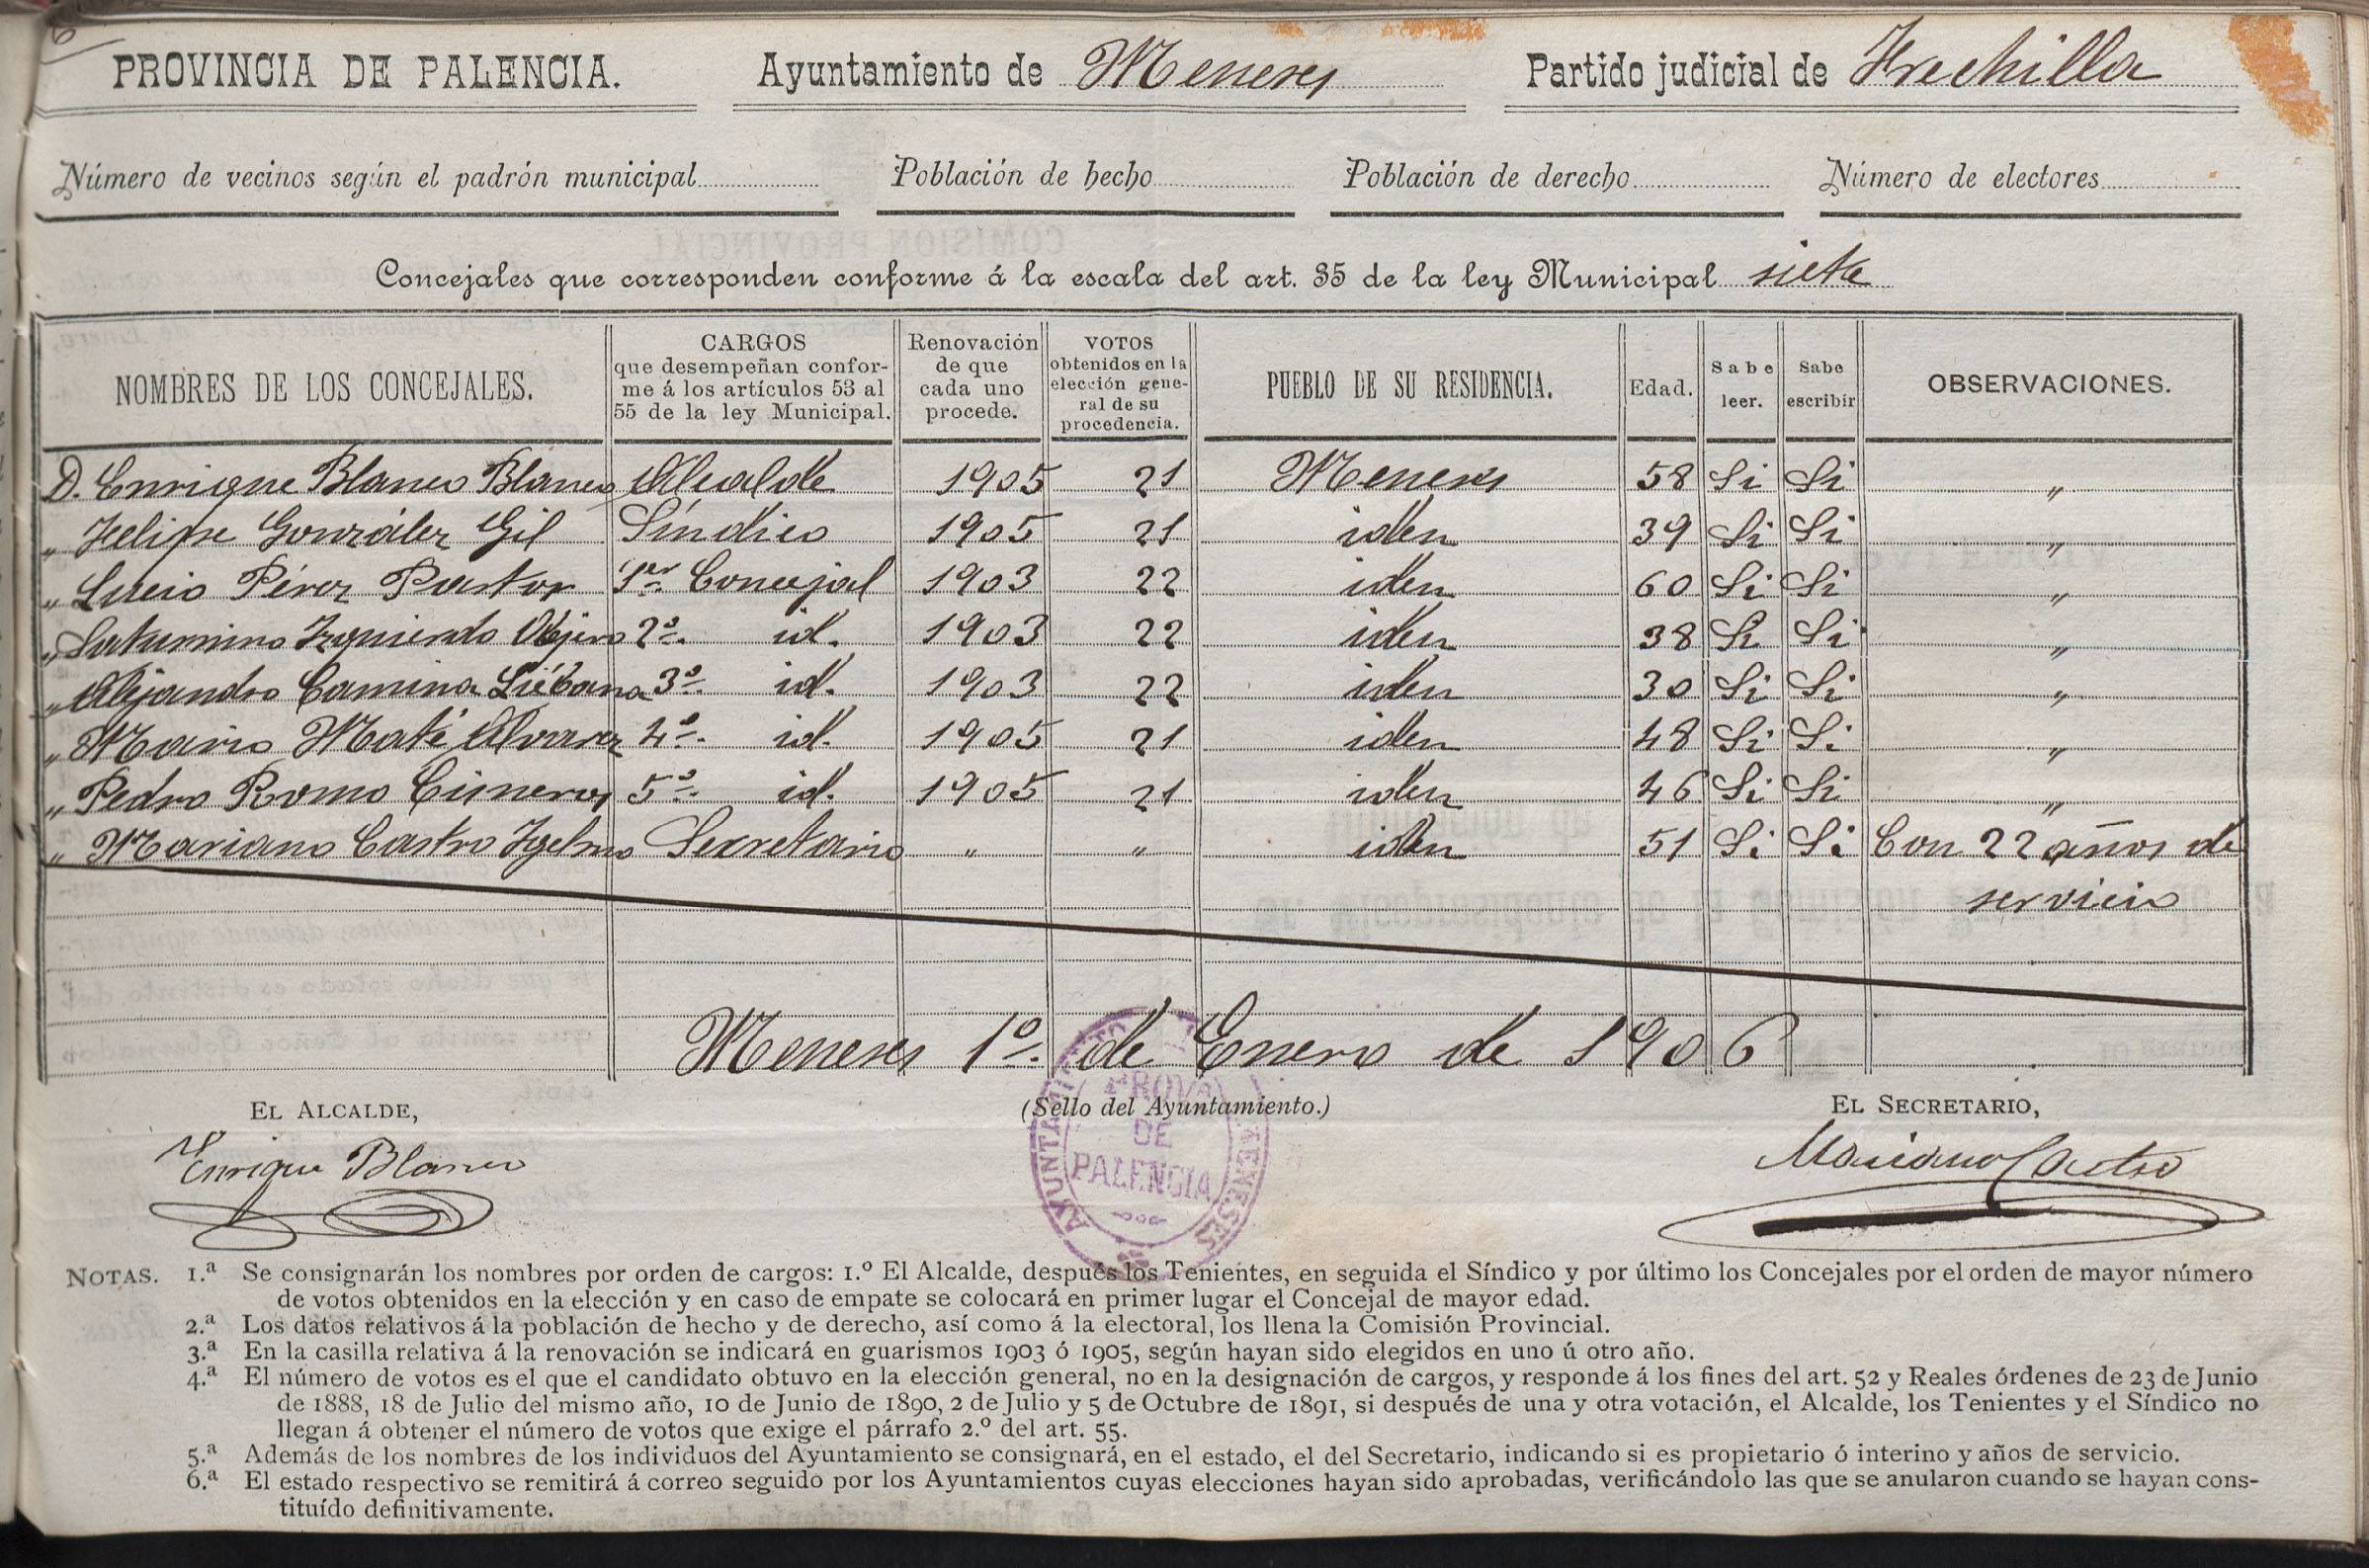 PROVINCIA DE PALENCIA. Ayuntamiento de Meneses Partido judicial de Frechilla
Número de vecinos según el padrón municipal Población de hecho Población de derecho Número de electores
Concejales que corresponden conforme á la escala del art. 35 de la ley Municipal siete
NOMBRES DE LOS CONCEJALES. CARGOS que desempeñan confor-me á los artículos 53 al 55 de la ley Municipal. Renovación de que cada uno procede. VOTOS obtenidos en la elección gene-ral de su procedencia. PUEBLO DE SU RESIDENCIA. Edad. Sabe leer. Sabe escribir OBSERVACIONES.
D. Enrique Blanco Blanco Alcalde 1905 21 Meneses 58 Si Si "
" Felipe González Gil Síndico 1905 21 iden 39 Si Si "
" Lucio Pérez Pastor 1er Concejal 1903 22 iden 60 Si Si "
" Saturnino Izquierdo 2º. id. 1903 22 iden 38 Si Si "
" Alejandro Camina Liébana 3º. id. 1903 22 iden 30 Si Si "
" Mario Maté Alvarez 4º. id. 1905 21 iden 48 Si Si "
" Pedro Romo Cisneros 5º. id. 1905 21 iden 46 Si Si "
" Mariano Castro Secretario " " iden 51 Si Si Con 22 años de
servicio
Meneses 1º. de Enero de 1906
EL ALCALDE, (Sello del Ayuntamiento.) EL SECRETARIO,
Enrique Blanco Mariano Castro
AYUNTAMIENTO MENESES PROVA DE PALENCIA
NOTAS. 1.ª Se consignarán los nombres por orden de cargos: 1.º El Alcalde, después los Tenientes, en seguida el Síndico y por último los Concejales por el orden de mayor número
de votos obtenidos en la elección y en caso de empate se colocará en primer lugar el Concejal de mayor edad.
2.ª Los datos relativos á la población de hecho y de derecho, así como á la electoral, los llena la Comisión Provincial.
3.ª En la casilla relativa á la renovación se indicará en guarismos 1903 ó 1905, según hayan sido elegidos en uno ú otro año.
4.ª El número de votos es el que el candidato obtuvo en la elección general, no en la designación de cargos, y responde á los fines del art. 52 y Reales órdenes de 23 de Junio
de 1888, 18 de Julio del mismo año, 10 de Junio de 1890, 2 de Julio y 5 de Octubre de 1891, si después de una y otra votación, el Alcalde, los Tenientes y el Síndico no
llegan á obtener el número de votos que exige el párrafo 2.º del art. 55.
5.ª Además de los nombres de los individuos del Ayuntamiento se consignará, en el estado, el del Secretario, indicando si es propietario ó interino y años de servicio.
6.ª El estado respectivo se remitirá á correo seguido por los Ayuntamientos cuyas elecciones hayan sido aprobadas, verificándolo las que se anularon cuando se hayan cons-
tituído definitivamente.